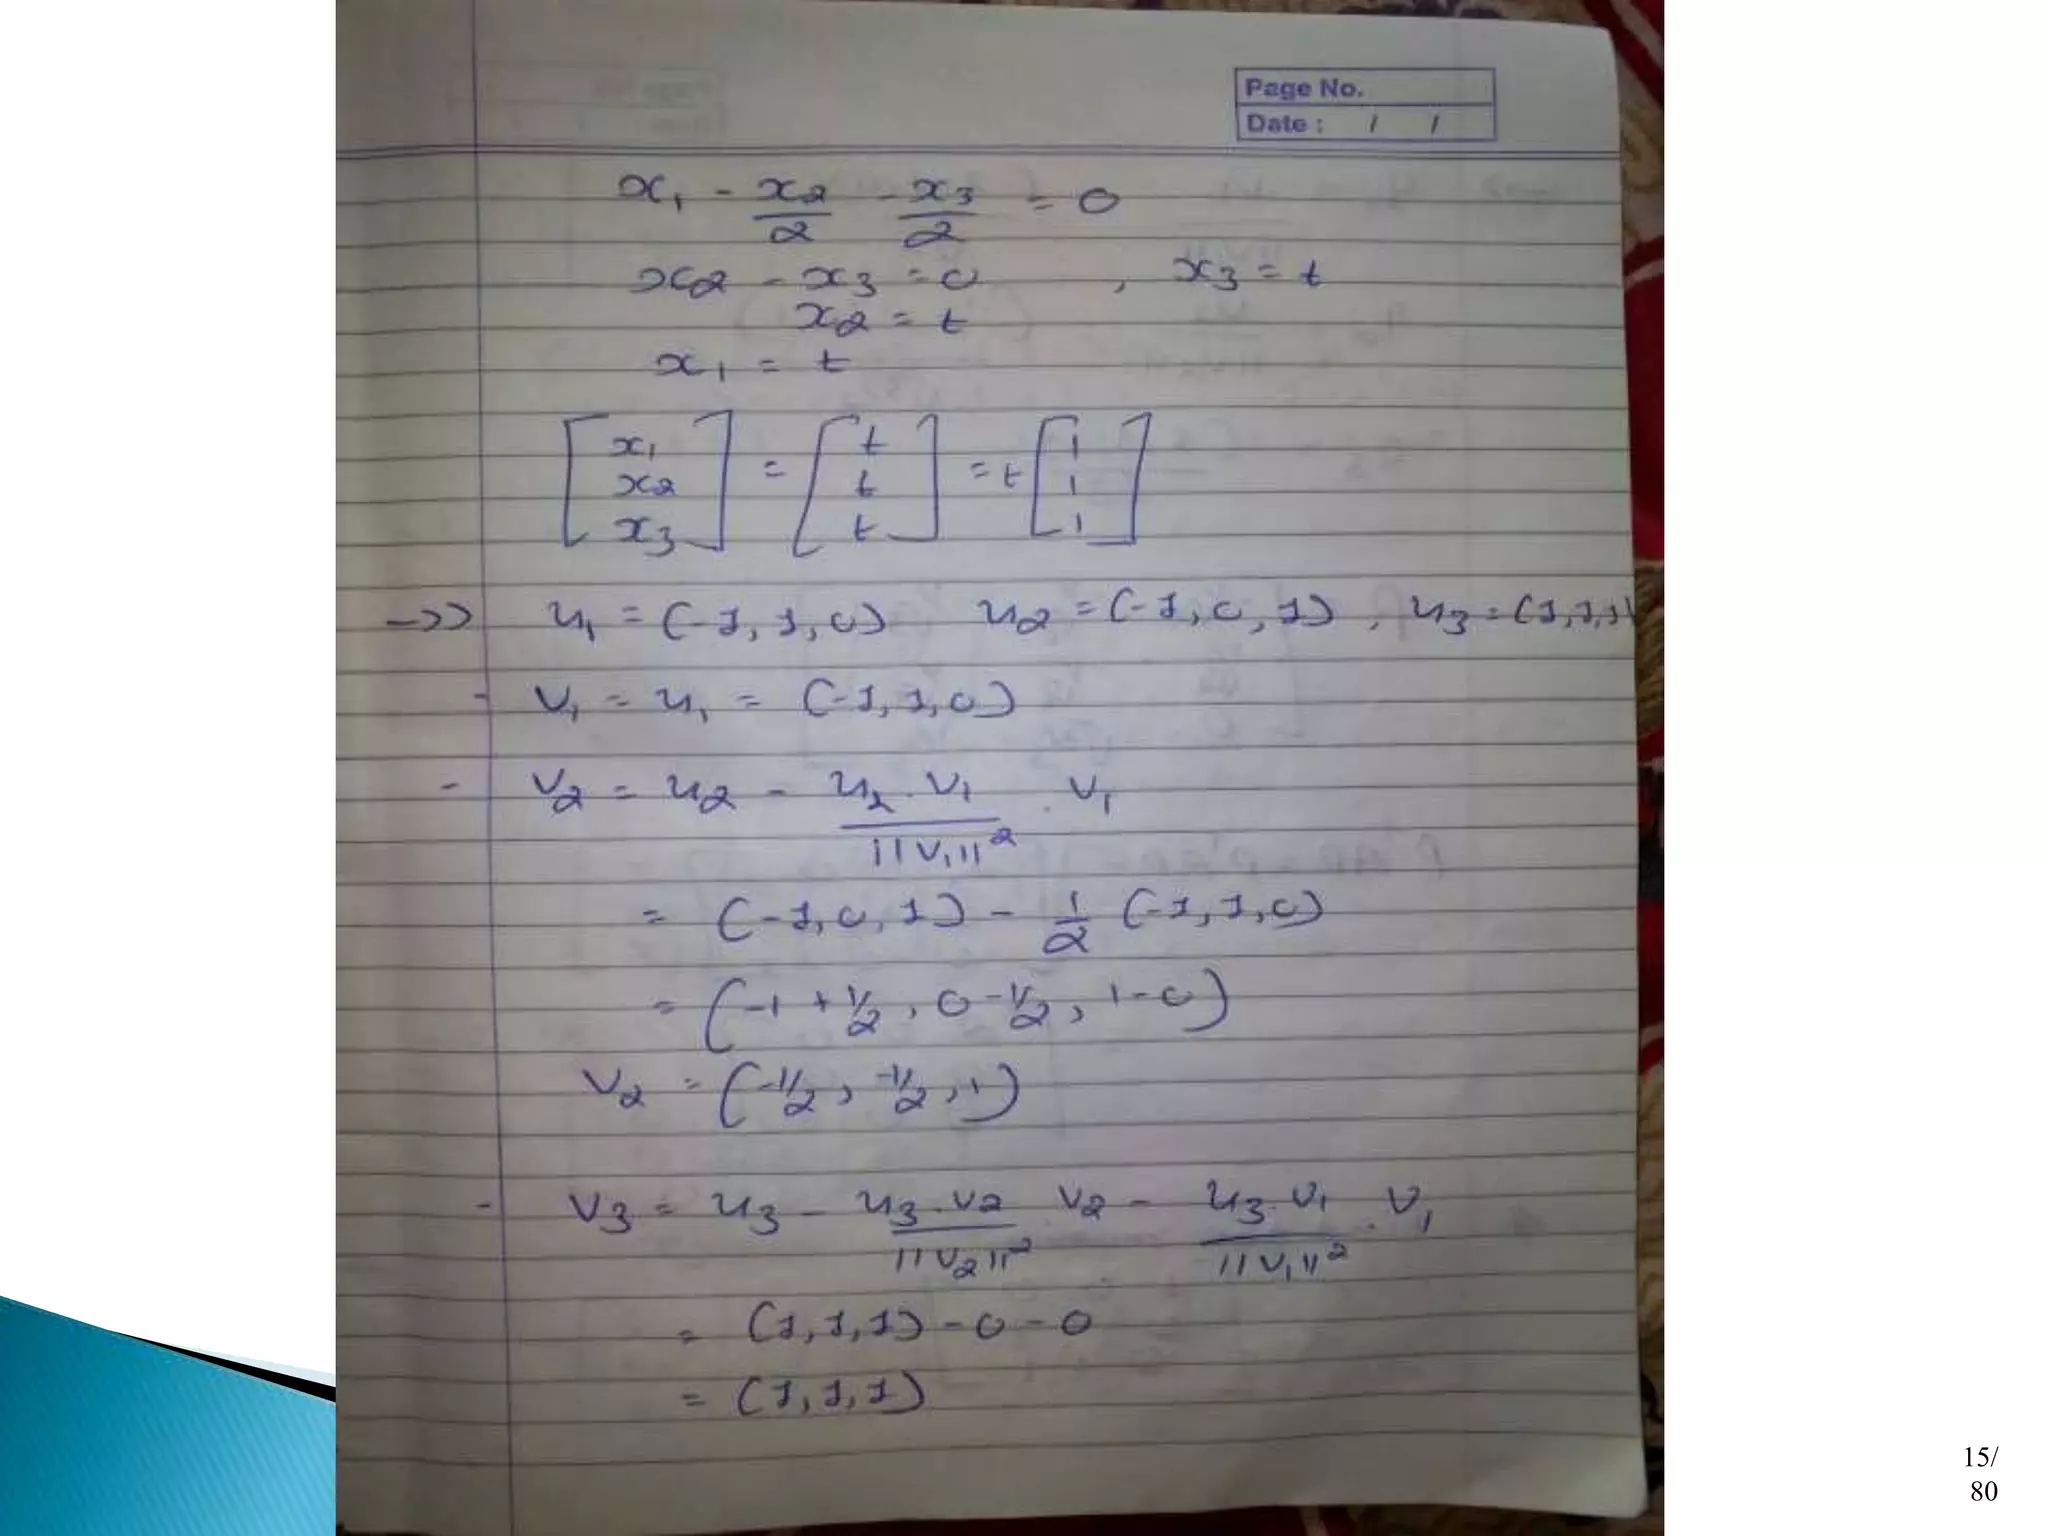 Page No.
Date : / /
x₁ - x₂/2 - x₃/2 = 0
x₂ - x₃ = 0 , x₃ = t
x₂ = t
x₁ = t
[x₁ x₂ x₃] = [t t t] = t [1 1 1]
->> u₁ = (-1, 1, 0) u₂ = (-1, 0, 1) , u₃ = (1,1,1)
- v₁ = u₁ = (-1, 1, 0)
- v₂ = u₂ - u₂ . v₁ / ||v₁||² . v₁
= (-1, 0, 1) - 1/2 (-1, 1, 0)
= (-1 + 1/2 , 0 - 1/2 , 1 - 0)
v₂ = (-1/2 , -1/2 , 1)
- v₃ = u₃ - u₃ . v₂ / ||v₂||² . v₂ - u₃ . v₁ / ||v₁||² . v₁
= (1, 1, 1) - 0 - 0
= (1, 1, 1)
15/
80